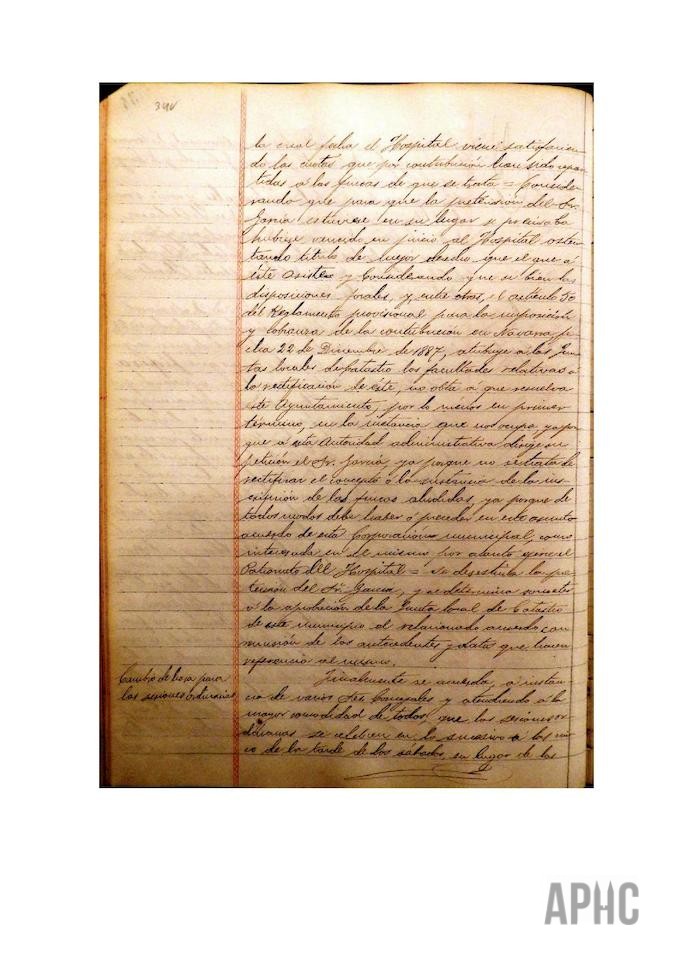 34v
la cual fecha el Hospital viene satisfacien
do las cuotas que por contribución han sido repar
tidas a las fincas de que se trata = Conside
rando que para que la pretensión del Sr.
García estuviese en su lugar se precisaba
hubiese vencido en juicio al Hospital osten
tando título de mejor derecho que el que a
este asiste y Considerando que si bien las
disposiciones forales, y entre otras, el artículo 50
del Reglamento provisional para la imposición
y cobranza de la contribución en Navarra, fe
cha 22 de Diciembre de 1887, atribuye a las Jun
tas locales de Catastro las facultades relativas a
la rectificación de este, no obsta a que resuelva
este Ayuntamiento, por lo menos en primer
término, en la instancia que nos ocupa, ya por
que a esta Autoridad administrativa dirige su
petición el Sr. García, ya porque no se trata de
rectificar el concepto o la sustancia de la ins
cripción de las fincas aludidas, ya porque de
todos modos debe haber o preceder en este asunto
acuerdo de esta Corporación municipal, como
interesada en el mismo por cuanto ejerce el
Patronato del Hospital = Se desestima la pre
tensión del Sr. García, y se determina someter
a la aprobación de la Junta local de Catastro
de este municipio el relacionado acuerdo, con
remisión de los antecedentes y datos que hacen
referencia al mismo.
Cambio de hora para
las sesiones ordinarias
Finalmente se acuerda, a instan
cia de varios Sres. Concejales y atendiendo a la
mayor comodidad de todos, que las sesiones or
dinarias se celebren en lo sucesivo a las cin
co de la tarde de los sábados, en lugar de las
APHC